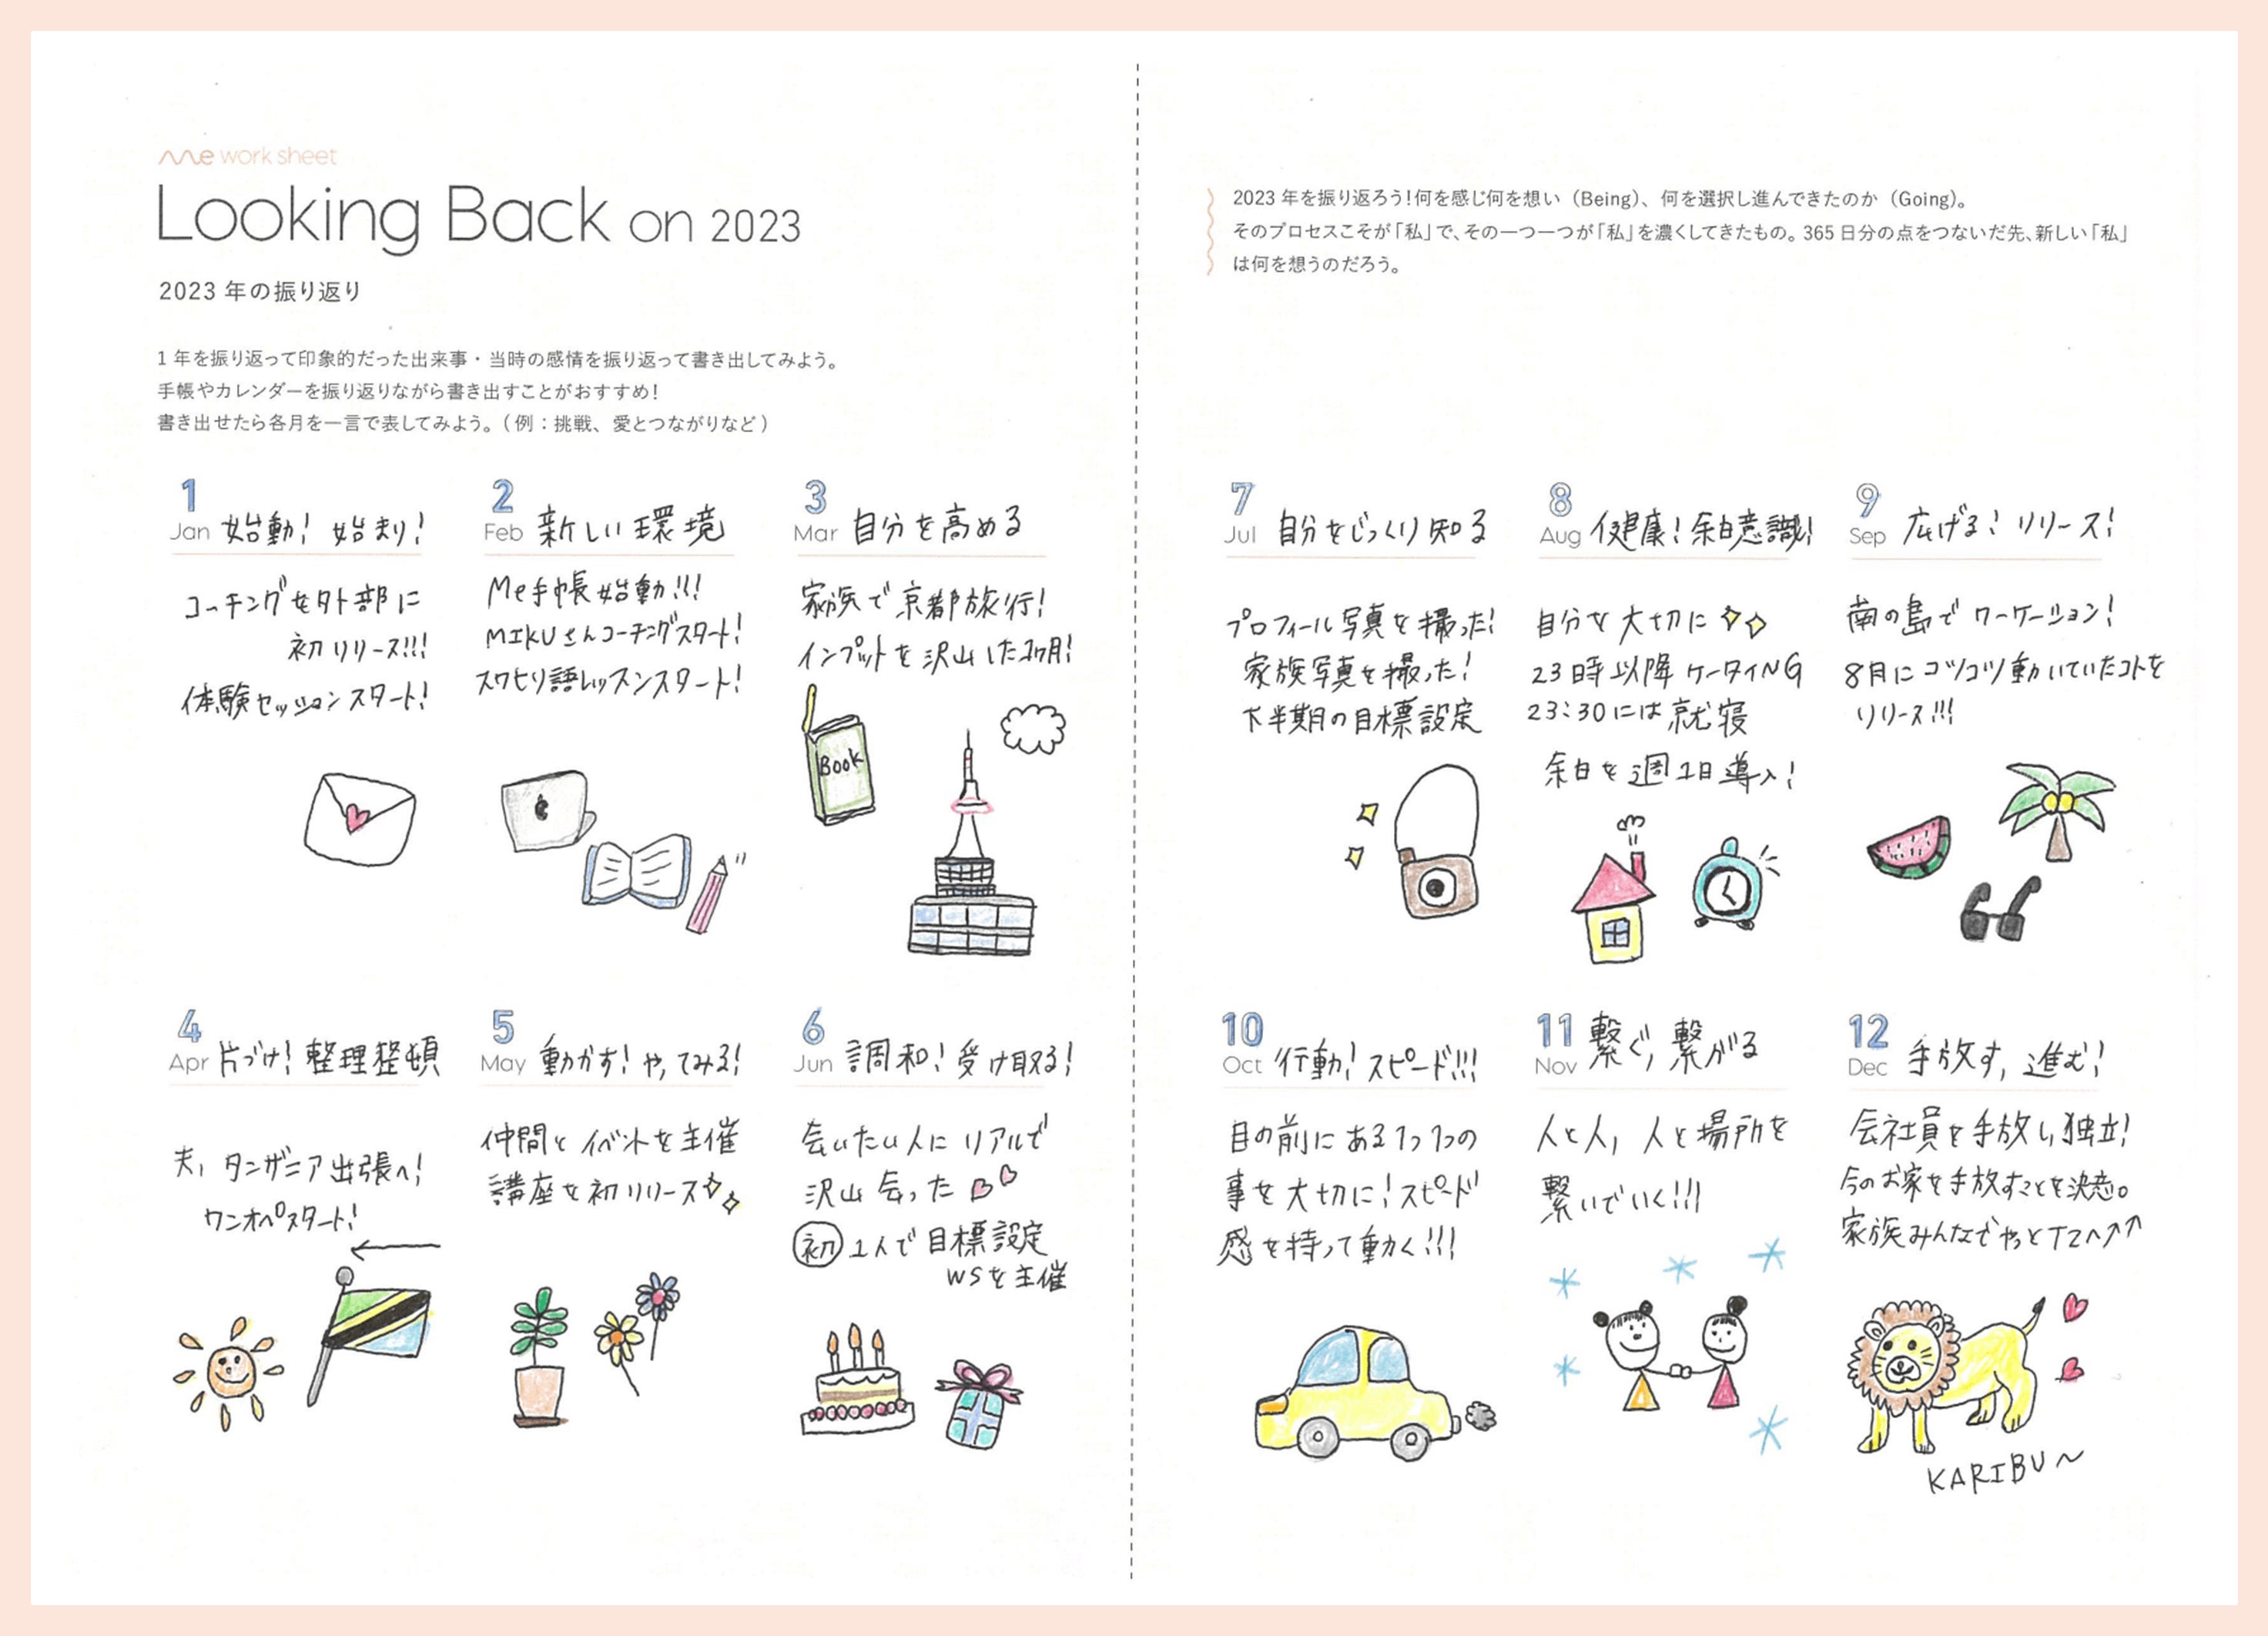 me work sheet
Looking Back on 2023
2023 年の振り返り
1 年を振り返って印象的だった出来事・当時の感情を振り返って書き出してみよう。
手帳やカレンダーを振り返りながら書き出すことがおすすめ！
書き出せたら各月を一言で表してみよう。（例：挑戦、愛とつながりなど）
1 Jan 始動! 始まり!
コーチングを外部に
初リリース!!!
体験セッションスタート!
2 Feb 新しい環境
Me手帳始動!!!
MIKUさんコーチングスタート!
スワヒリ語レッスンスタート!
3 Mar 自分を高める
家族で京都旅行!
インプットを沢山した1ヶ月!
Book
4 Apr 片づけ! 整理整頓
夫, タンザニア出張へ!
ワンオペスタート!
5 May 動かす! やってみる!
仲間とイベントを主催
講座を初リリース
6 Jun 調和! 受け取る!
会いたい人にリアルで
沢山会った
初 1人で目標設定
WSを主催
2023 年を振り返ろう！何を感じ何を想い（Being）、何を選択し進んできたのか（Going）。
そのプロセスこそが「私」で、その一つ一つが「私」を濃くしてきたもの。365 日分の点をつないだ先、新しい「私」
は何を想うのだろう。
7 Jul 自分をじっくり知る
プロフィール写真を撮った!
家族写真を撮った!
下半期の目標設定
8 Aug 健康! 余白意識!
自分を大切に
23時以降ケータイNG
23:30には就寝
余白を週1日導入!
9 Sep 広げる! リリース!
南の島でワーケーション!
8月にコツコツ動いていたコトを
リリース!!!
10 Oct 行動! スピード!!!
目の前にある1つ1つの
事を大切に! スピード
感を持って動く!!!
11 Nov 繋ぐ, 繋がる
人と人, 人と場所を
繋いでいく!!!
12 Dec 手放す, 進む!
会社員を手放し独立!
今のお家を手放すことを決意。
家族みんなでやっとTZへ↗↗
KARIBU〜